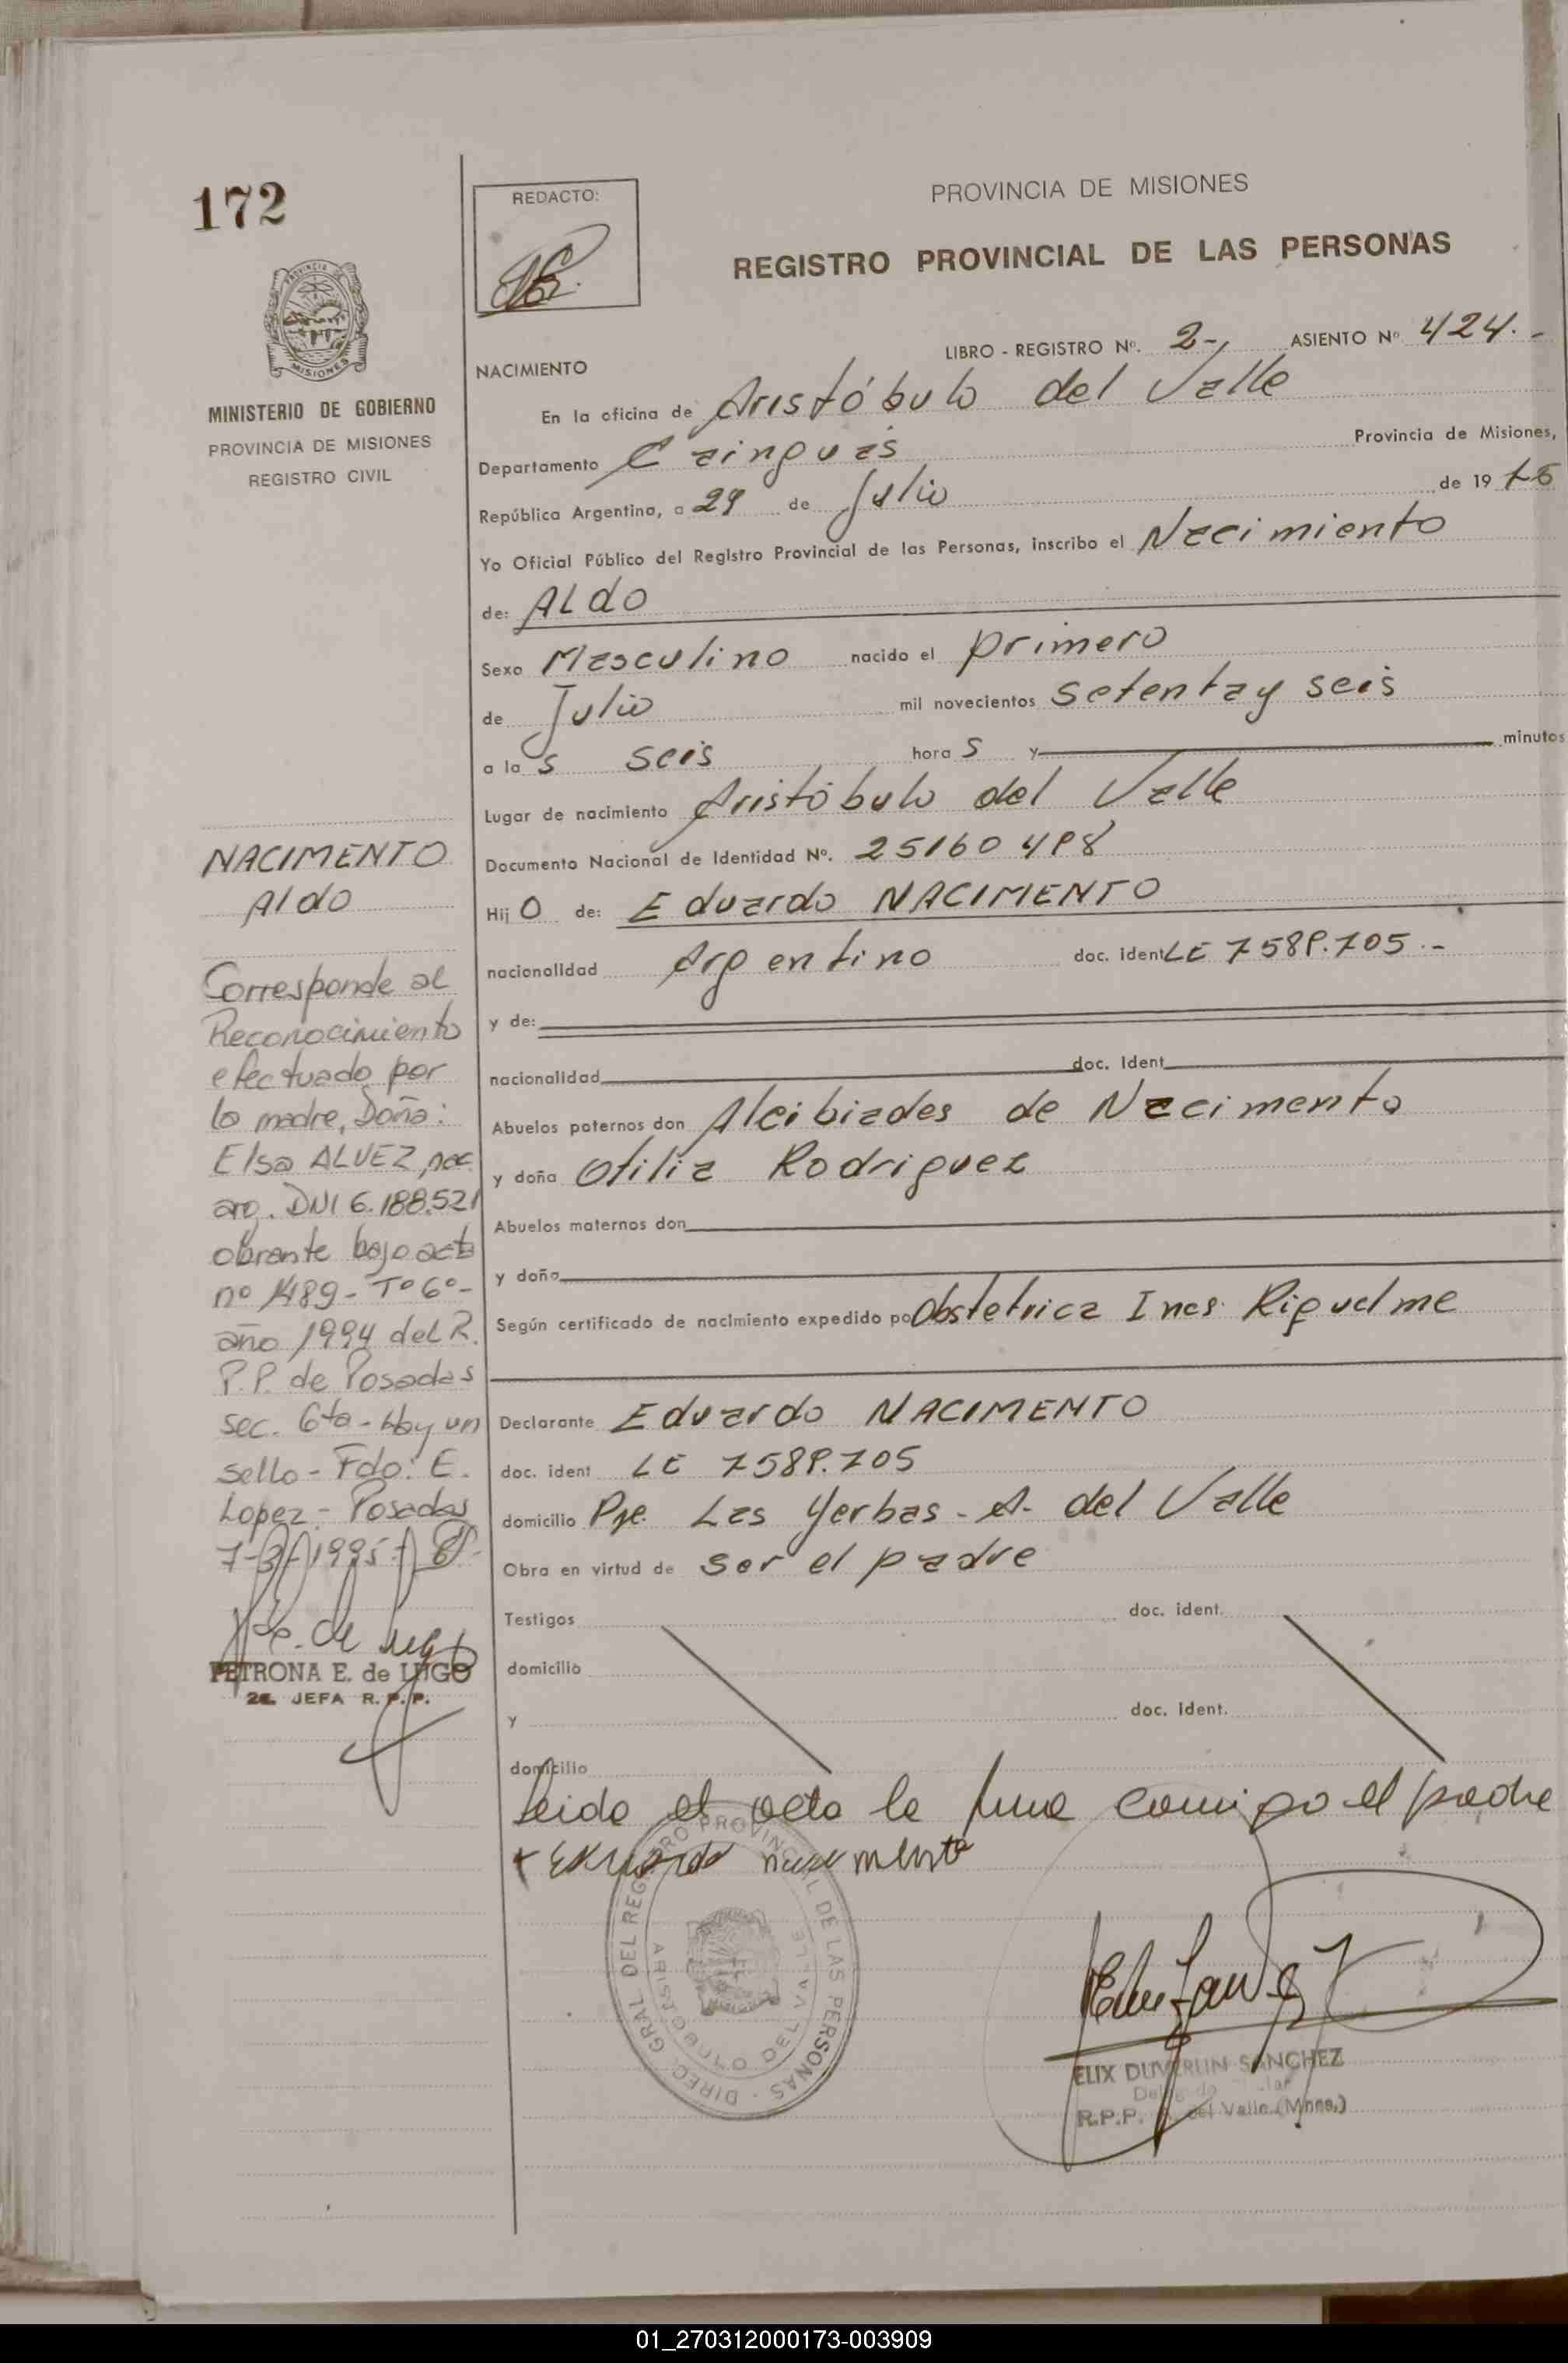 172
PROVINCIA DE MISIONES
MINISTERIO DE GOBIERNO
PROVINCIA DE MISIONES
REGISTRO CIVIL
NACIMENTO
Aldo
Corresponde al
Reconocimiento
efectuado por
la madre, Doña:
Elsa ALVEZ, nac.
arg. DNI 6.188.521
obrante bajo acta
nº 1489 - Tº 6º -
año 1994 del R.
P.P. de Posadas
sec. 6ta - Hay un
sello - Fdo: E.
Lopez - Posadas
1995
PETRONA E. de LUGO
2a. JEFA R.P.P.
REDACTO:
PROVINCIA DE MISIONES
REGISTRO PROVINCIAL DE LAS PERSONAS
LIBRO - REGISTRO Nº. 2-, ASIENTO Nº 424.-
NACIMIENTO
En la oficina de Aristóbulo del Valle
Departamento Cainguás Provincia de Misiones,
República Argentina, a 29 de Julio de 19 76
Yo Oficial Público del Registro Provincial de las Personas, inscribo el Nacimiento
de: ALdO
Sexo Masculino nacido el primero
de Julio mil novecientos setenta y seis
a la s seis hora s y minutos
Lugar de nacimiento Aristóbulo del Valle
Documento Nacional de Identidad Nº. 25160498
Hij O de: Eduardo NACIMENTO
nacionalidad Argentino doc. ident LE 7589.705.-
y de:
nacionalidad doc. Ident
Abuelos paternos don Alcibiades de Nacimento
y doña Otilia Rodriguez
Abuelos maternos don
y doña
Según certificado de nacimiento expedido po Obstetrica Ines Riquelme
Declarante Eduardo NACIMENTO
doc. ident LE 7589.705
domicilio Pje. Las Yerbas - A. del Valle
Obra en virtud de ser el padre
Testigos doc. ident.
domicilio
y doc. ident.
domicilio
Leida el acta la firma conmigo el padre
DIREC. GRAL. DEL REGISTRO PROVINCIAL DE LAS PERSONAS
ARISTOBULO DEL VALLE
ELIX DUVERLIN SANCHEZ
R.P.P. A. del Valle (Mnes.)
01_270312000173-003909